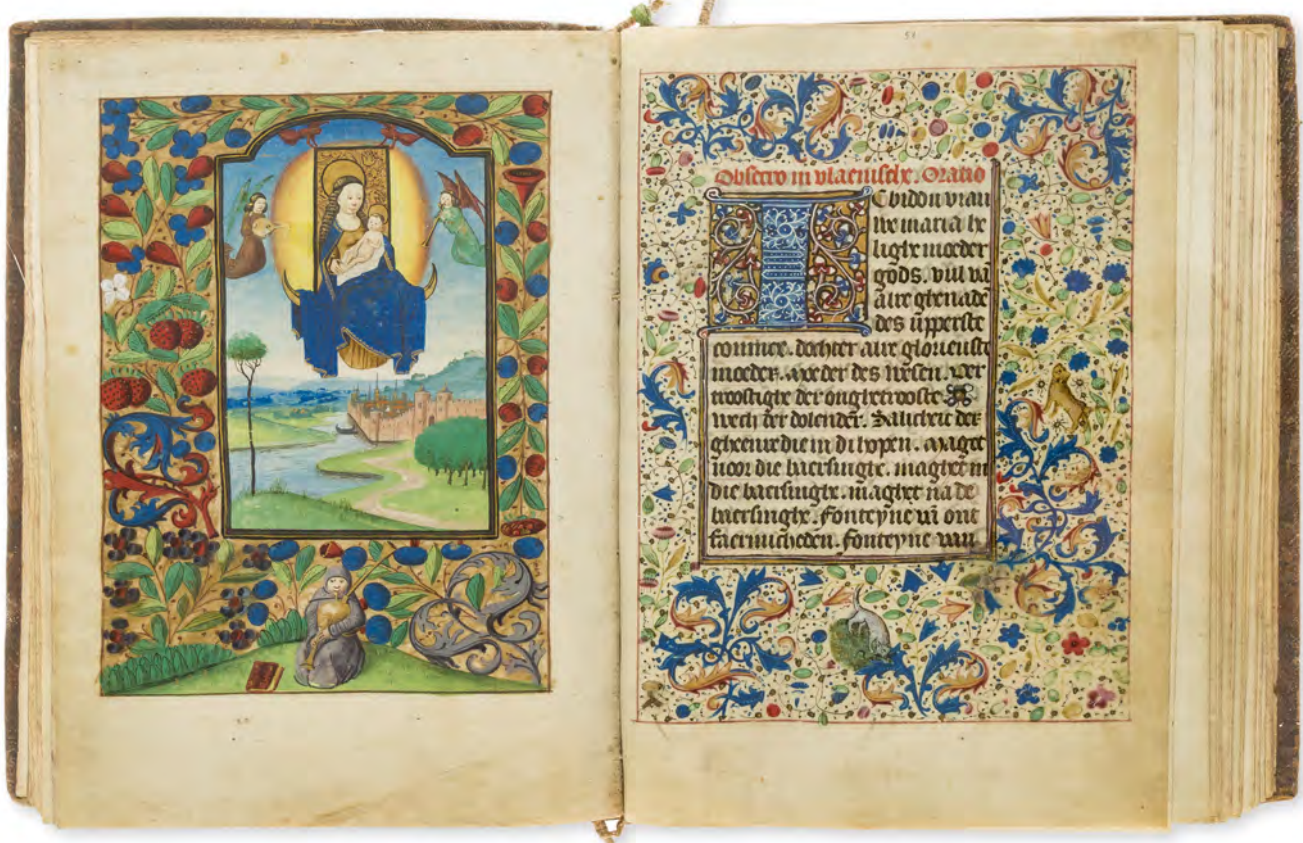 Obsecro in vlaemsche. Oratio
IC biddu vrau
we maria he
lighe moeder
gods. vul vā
alre ghenade
des upperste
conincx. dochter alre glorieuste
moeder. moeder des wesen. ver
troostighe der onghetrooste
wech der dolender. Salicheit der
gheenre die in di hopen. maget
voor die baersinghe. maghet in
die baersinghe. maghet na de
baersinghe. Fonteyne vā ont
faermicheden. fonteyne van